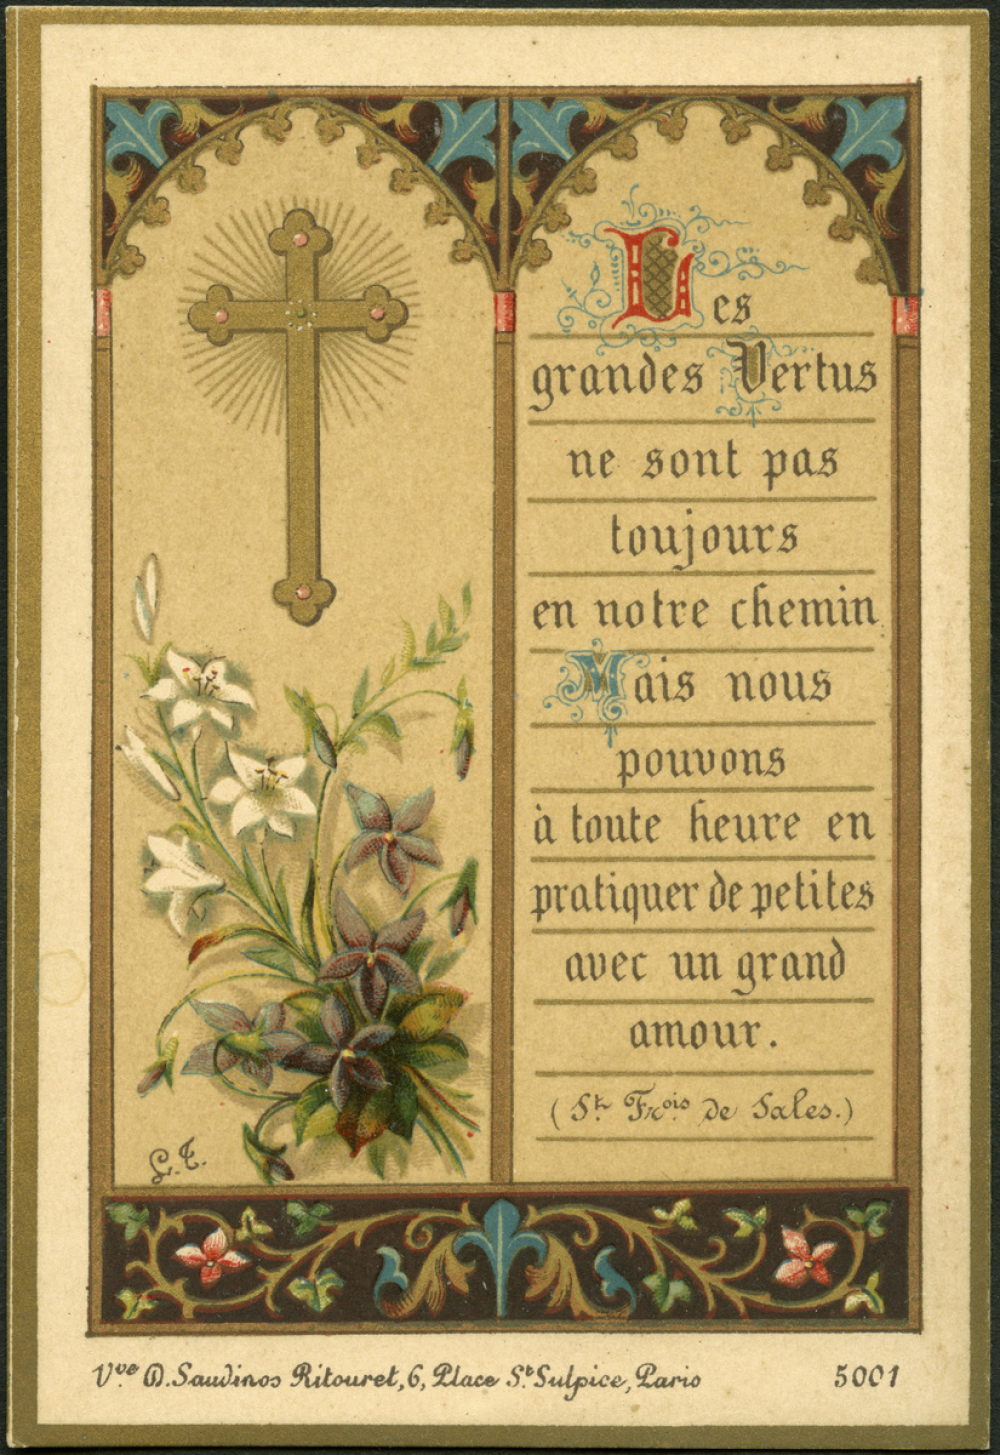 Les
grandes Vertus
ne sont pas
toujours
en notre chemin
Mais nous
pouvons
à toute heure en
pratiquer de petites
avec un grand
amour.
(St. Frois de Sales.)
L.T.
Vve. D. Saudinos Ritouret, 6, Place St. Sulpice, Paris 5001